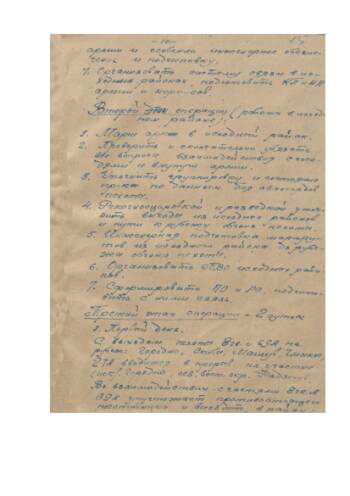 - 10 -
армии и особенно инженерное обеспе-
чение и подготовку.
7. Организовать систему связи в ис-
ходных районах, подготовить КП и НП
армии и корпусов.
Второй этап операции (работа в исход-
ном районе).
1. Марш армии в исходный район.
2. Проверить и окончательно увязать
все вопросы взаимодействия с сосе-
дями и внутри армии.
3. Уточнить группировку и состояние
пр-ка по данным
пехоты.
4. Рекогносцировкой и разведкой уточ-
нить выходы из исходных районов
и пути к рубежу
5. Инженерная подготовка маршру-
тов из исходного района до рубе-
жа обгона пехоты.
6. Организовать ПВО исходного райо-
на.
7. Сформировать ПО и РО, подгото-
вить с ними связь.
Третий этап операции - 2 суток
1. Первый день.
С выходом пехоты
рубеж: Городно,
2ТА вводится в прорыв на участке
Во взаимодействии с частями
уничтожает противостоящего
противника и выходит в район: